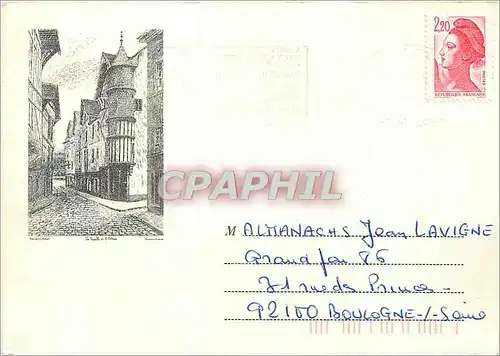 2,20
POSTES
REPUBLIQUE FRANÇAISE
CPAPHIL
M ALMANACHS Jean LAVIGNE
Grand fou 86
31 rue des Princes -
92100 BOULOGNE-/-Seine